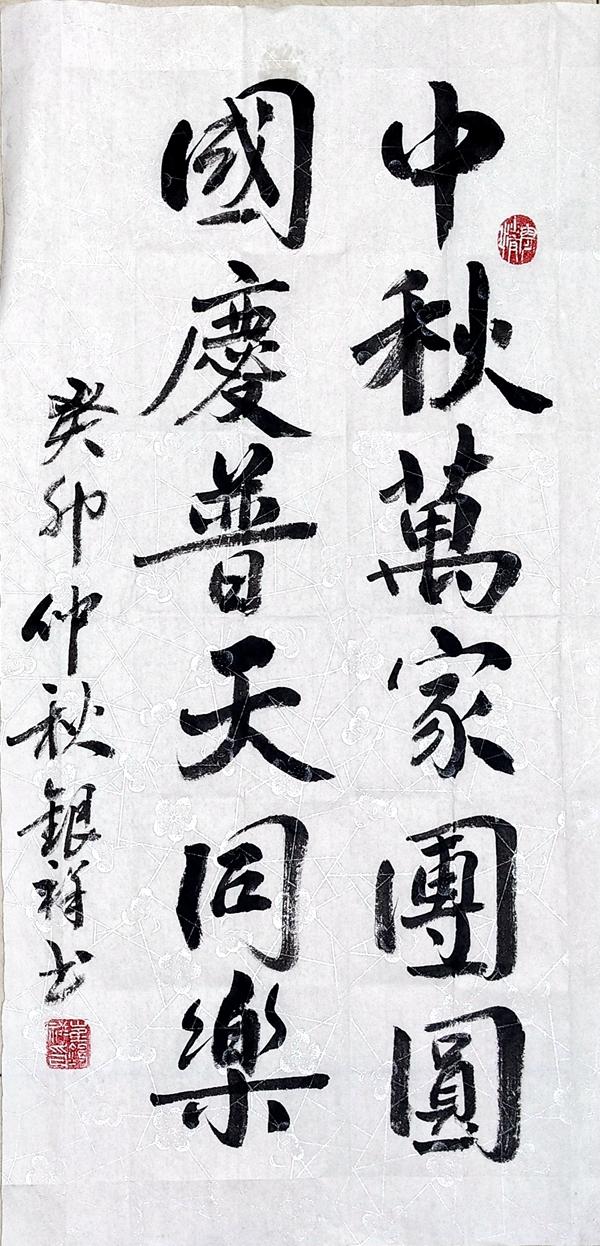 中秋萬家團圓
國慶普天同樂
癸卯仲秋銀祥书